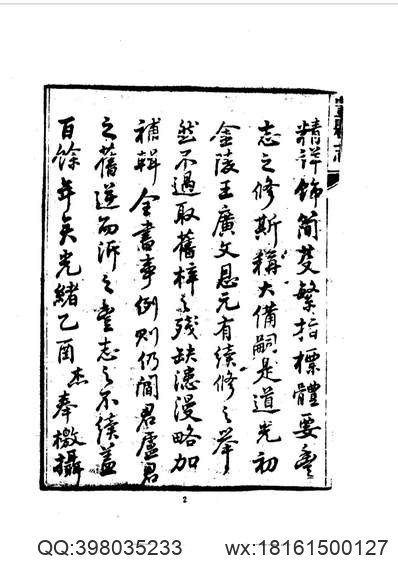 精詳飾簡芟繁指標體要壹
志之修斯稱大備嗣是道光初
金陵王廣文恩元有續修之舉
然不過取舊梓之殘缺漶漫略加
補輯全書事例則仍閻君盧君
之舊遡而泝之壹志之不續蓋
百餘年矣光緒乙酉杰奉檄攝
2
QQ:398035233 wx:18161500127